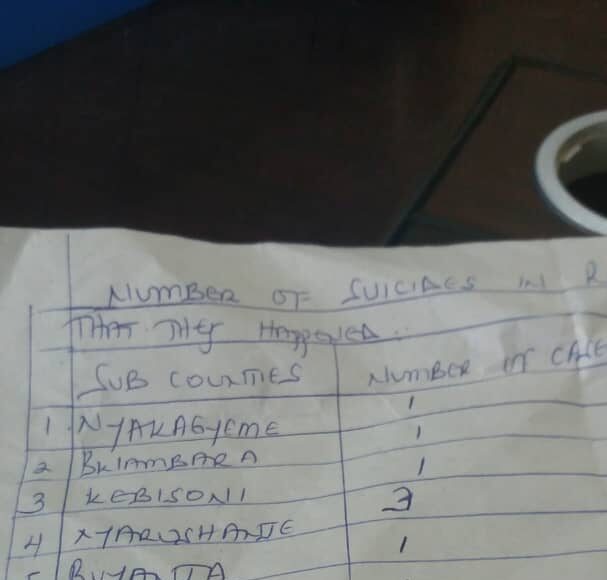 NUMBER OF SUICIDES IN R
THAT THEY HAPPENED..
SUB COUNTIES NUMBER OF CASE
1 NYAKAGYEME 1
2 BKIAMBARA 1
3 KEBISONI 1
4 NYARUSHANJE 3
5 BUYANJA 1